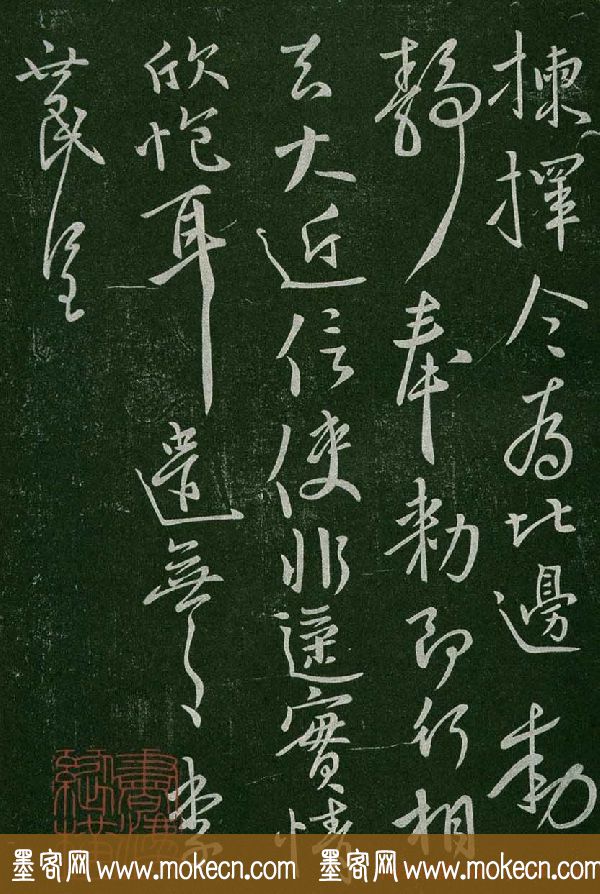 揀擇令為此邊動
靜奉勅即行相
去大近信使非遥實情
欣悅耳遣無々
世民呈
墨客网 www.mokecn.com 墨客网 www.mokecn.com